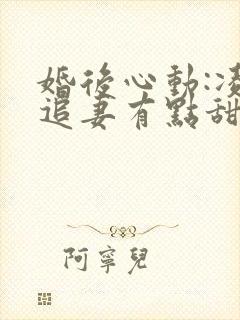 婚後心動:凌
追妻有點甜
阿寧兒